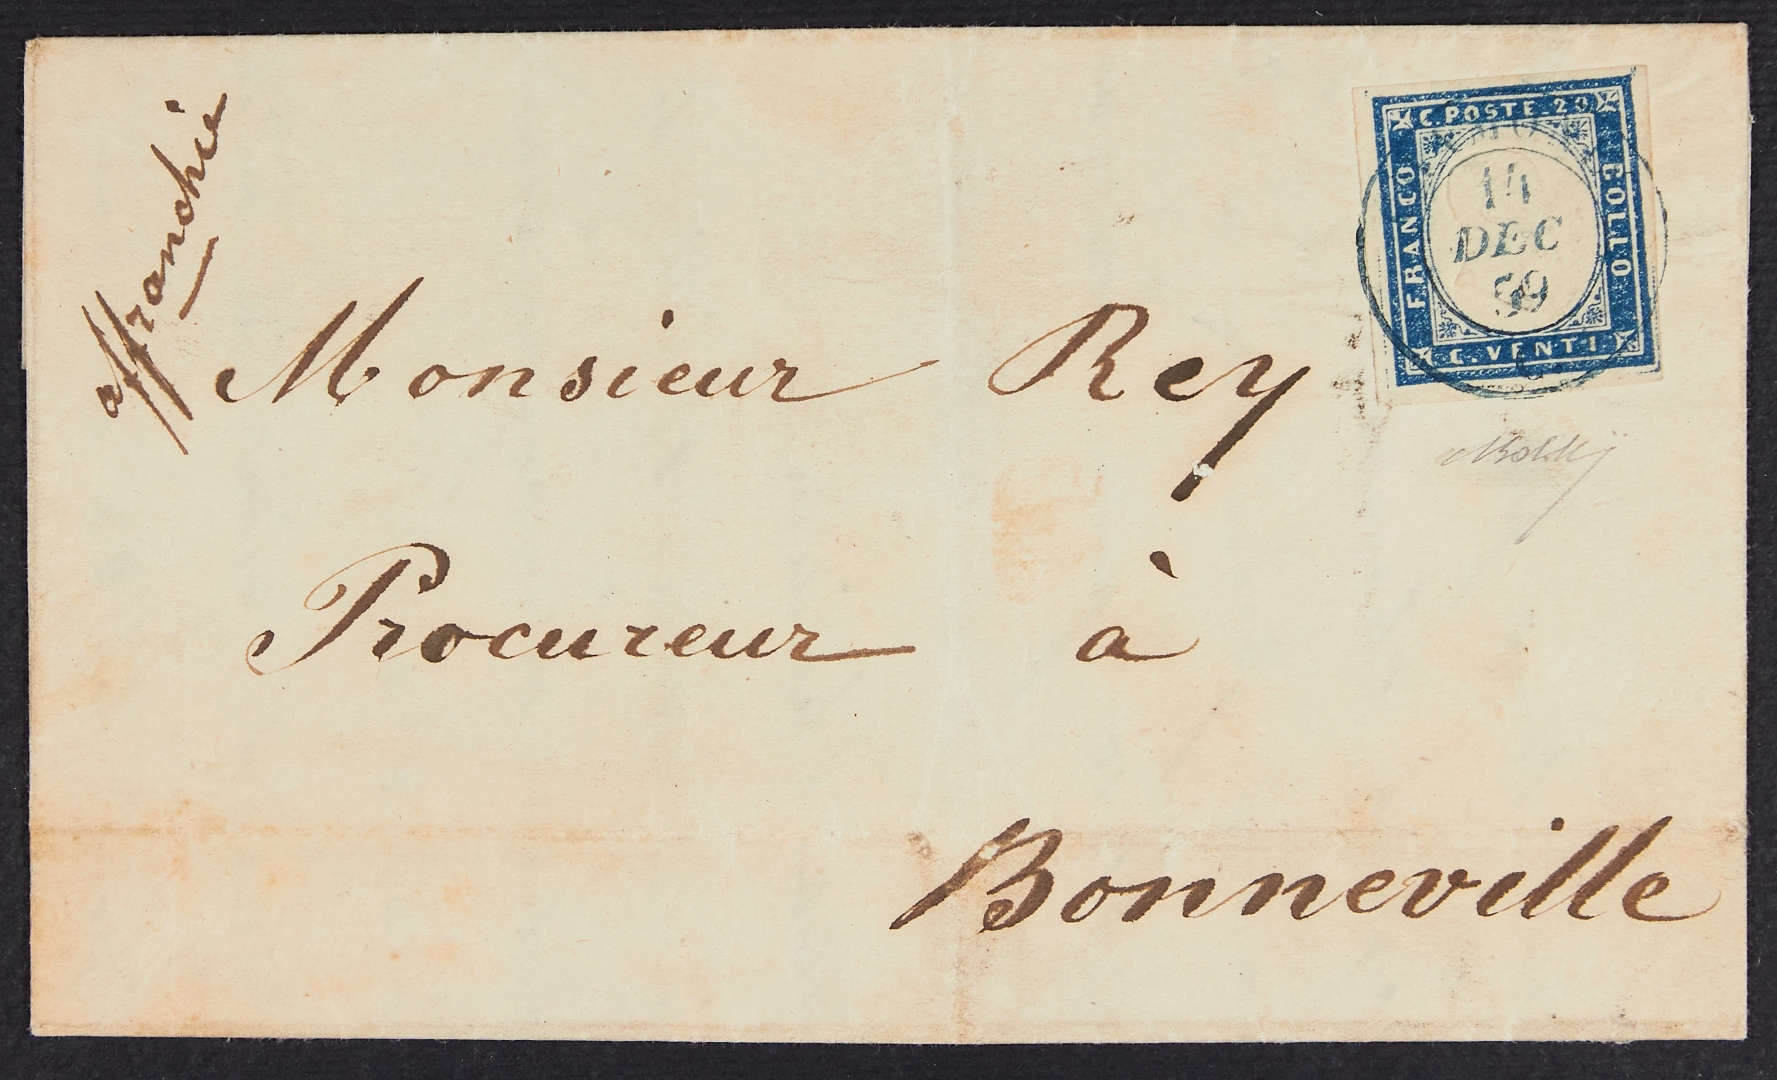 affranchie
C. POSTE. 20
FRANCO
BOLLO
C. VENTI.
14
DEC
59
Monsieur Rey
Procureur à
Bonneville